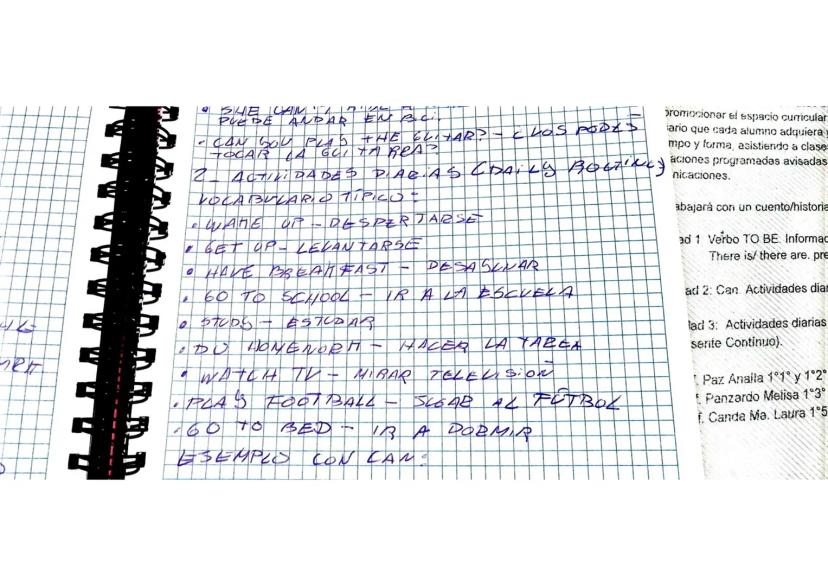 PUEDE ANDAR EN BICI.
• CAN YOU PLAY THE GUITAR? – ¿VOS PODÉS
TOCAR LA GUITARRA?
2_ ACTIVIDADES DIARIAS (DAILY ROUTINE)
VOCABULARIO TÍPICO:
• WAKE UP – DESPERTARSE
• GET UP – LEVANTARSE
• HAVE BREAKFAST – DESAYUNAR
• GO TO SCHOOL – IR A LA ESCUELA
• STUDY – ESTUDAR
• DO HOMEWORK – HACER LA TAREA
• WATCH TV – MIRAR TELEVISIÓN
• PLAY FOOTBALL – JUGAR AL FÚTBOL
• GO TO BED – IR A DORMIR
EJEMPLO CON CAN:
promocionar el espacio curricular
ario que cada alumno adquiera
mpo y forma, asistiendo a clase
aciones programadas avisadas
nicaciones.
abajará con un cuento/historia
ad 1 Verbo TO BE. Informac
There is/ there are. pre
ad 2: Can. Actividades diar
dad 3: Actividades diarias
sente Continuo).
Paz Analia 1°1° y 1°2°
Panzardo Melisa 1°3°
f. Canda Ma. Laura 1°5